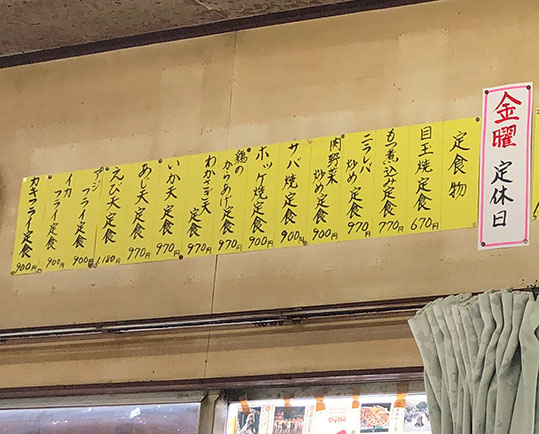 金曜定休日
定食物
目玉焼定食 670円
もつ煮込み定食 770円
ニラレバ炒め定食 970円
肉野菜炒め定食 900円
サバ焼定食 900円
ホッケ焼定食 900円
鶏のからあげ定食 970円
わかさぎ天定食 970円
いか天定食 970円
あじ天定食 970円
えび天定食 1,180円
アジフライ定食 900円
イカフライ定食 900円
カキフライ定食 900円
DyDo